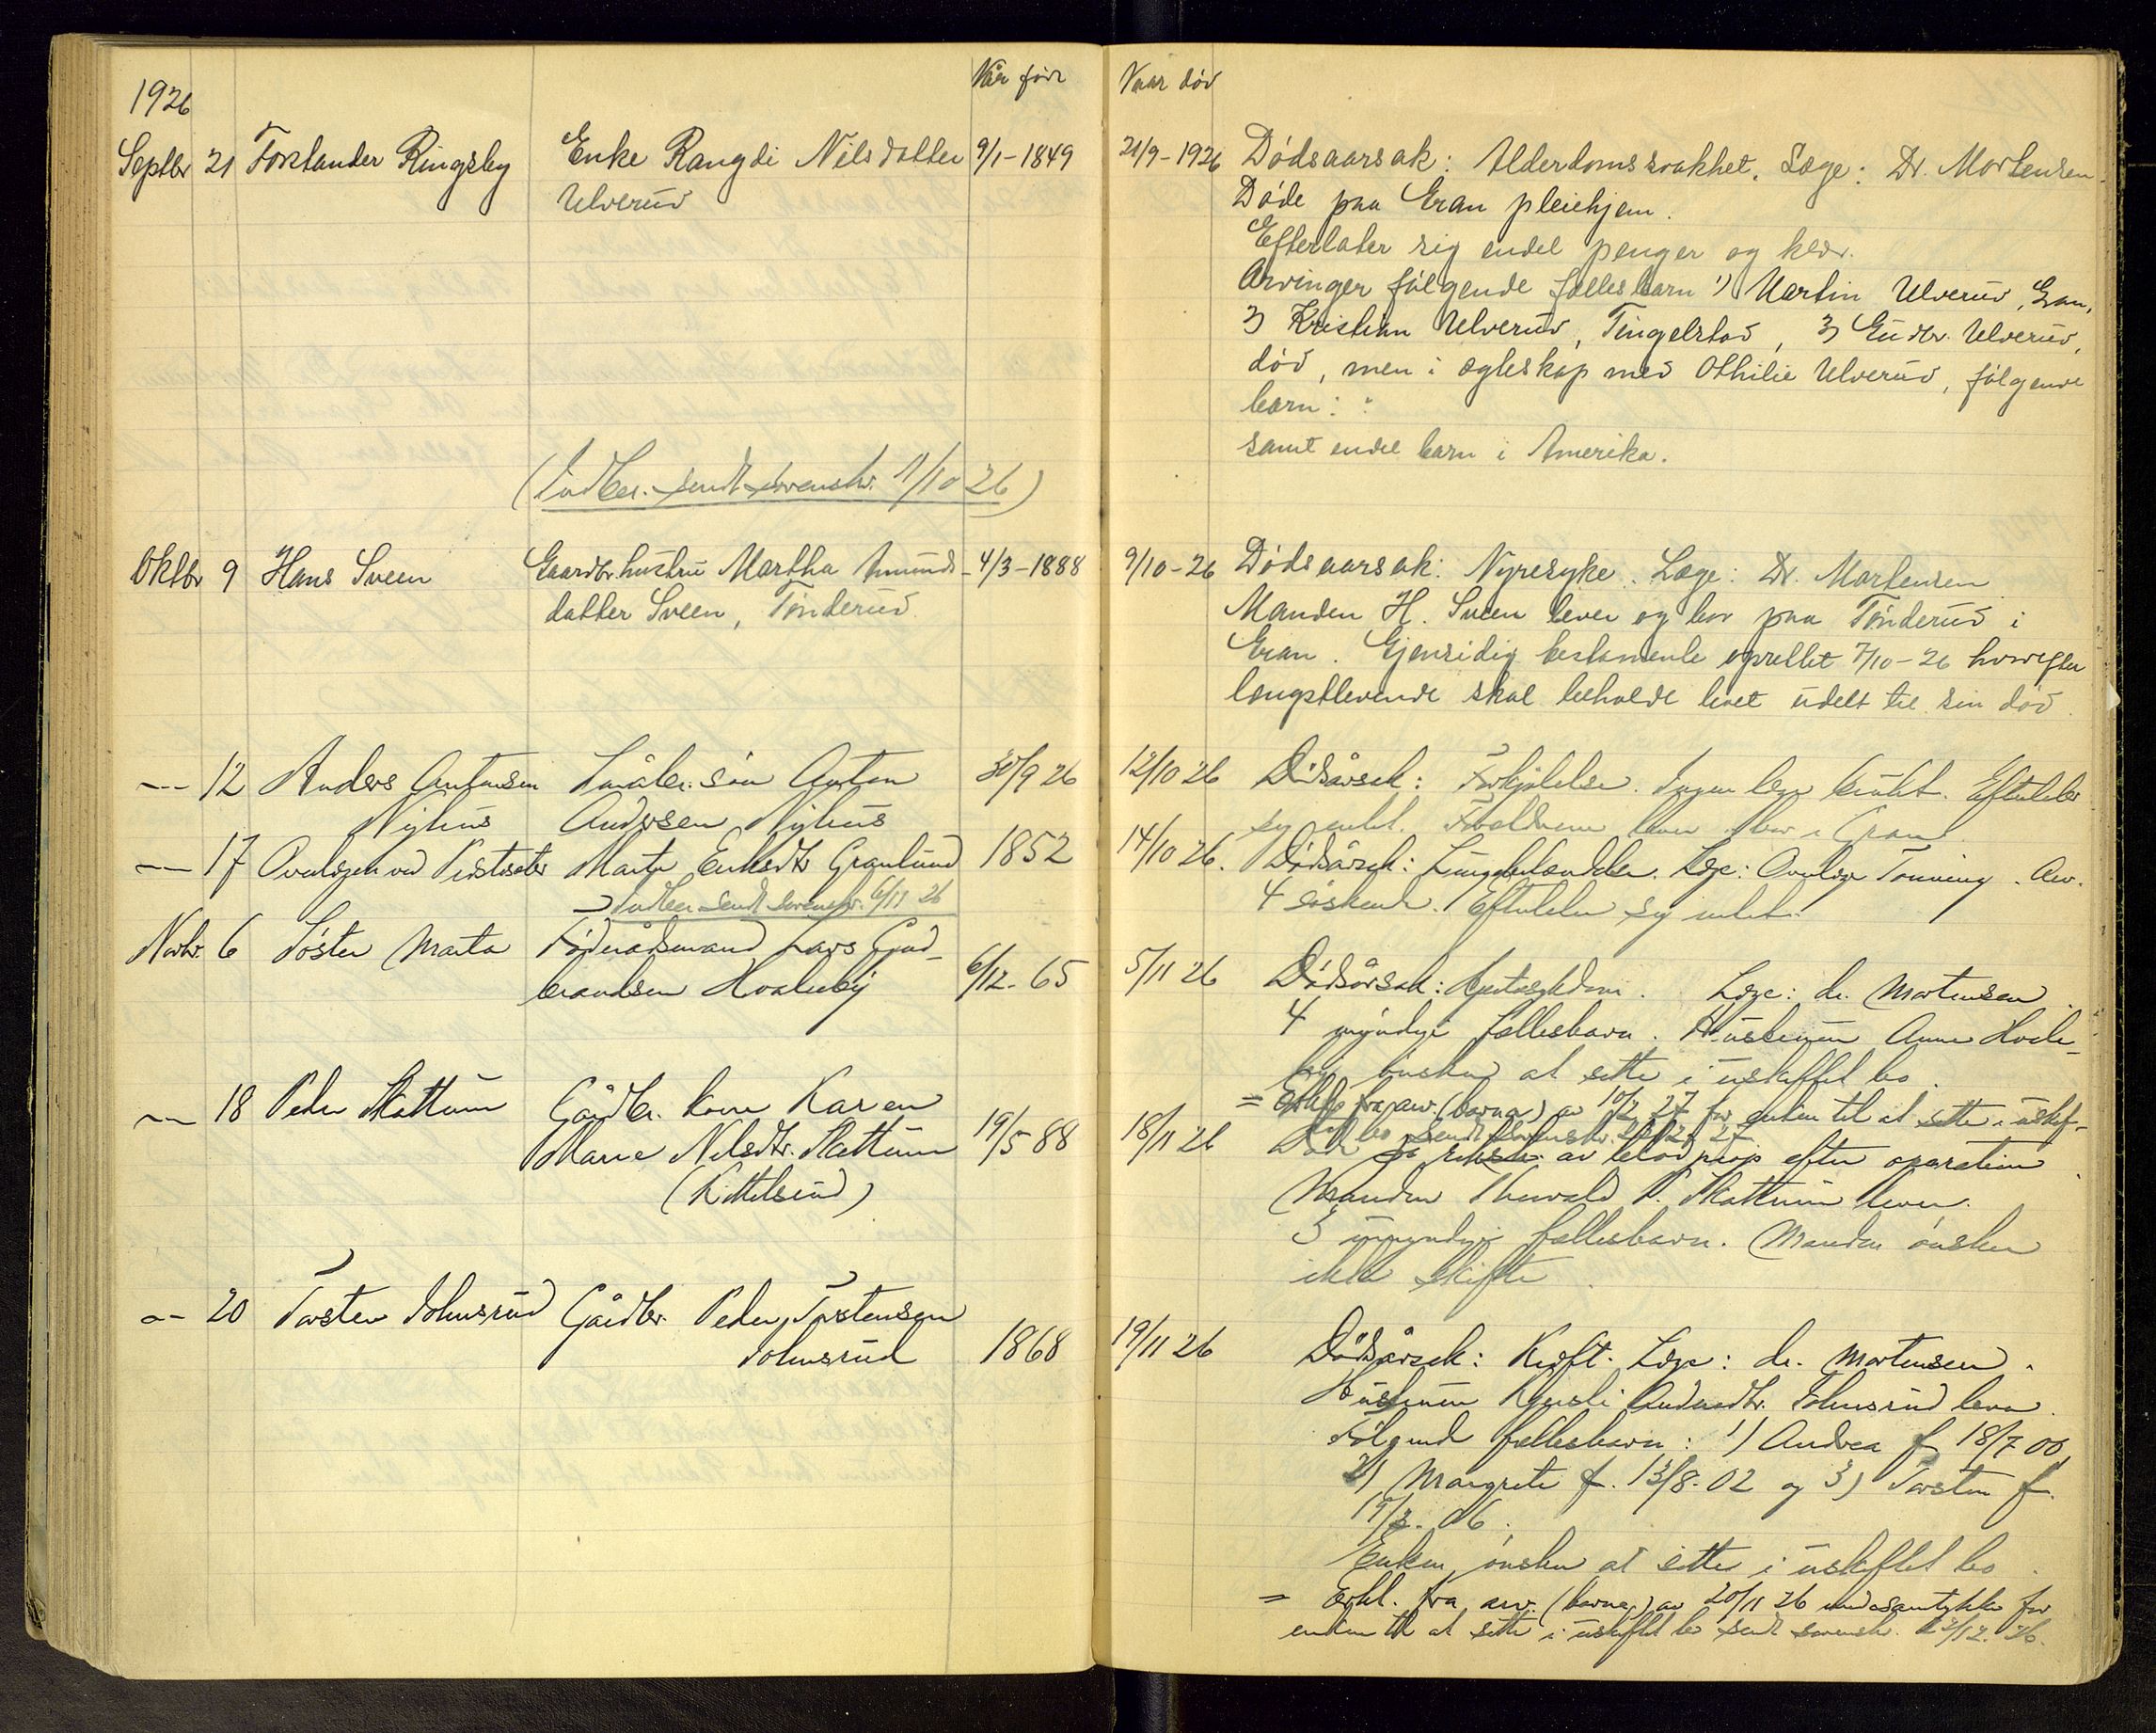 1926
Når född
Naar död
Septbr 21 Forstander Ringsby Enke Rangdi Nilsdatter 9/1-1849 21/9-1926 Dödsaarsak: Alderdomssvakhet. Læge: Dr. Mortensen.
Ulverud Döde paa Gran pleiehjem.
Efterlater sig endel penger og klær.
Arvinger fölgende fællesbarn 1) Martin Ulverud, Gran,
2) Kristian Ulverud, Tingelstad, 3) Gudbr. Ulverud,
död, men i egteskap med Othilie Ulverud, fölgende
barn:
samt endel barn i Amerika.
(Indber. sendt sorenskr. 11/10 26)
Oktbr 9 Hans Sveen Gaardbr.hustru Martha Amunds- 4/3-1888 9/10-26 Dödsaarsak: Nyresyke. Læge: Dr. Mortensen
datter Sveen, Tönderud. Manden H. Sveen lever og bor paa Tönderud i
Gran. Gjensidig testamente oprettet 7/10-26 hvorefter
længstlevende skal beholde boet udelt til sin död.
--- 12 Anders Antonsen Småbr. sön Anton 30/9 26 12/10 26 Dödsårsak: Forkjölelse. Ingen læge brukt. Efterlater
Nyhus Andersen Nyhus sig intet. Forældrene lever og bor i Gran
--- 17 Overlægen ved Marte Eriksdtr Granlund 1852 14/10 26. Dödsårsak: Lungebetændelse. Læge: Overlæge Tonning. Arv.
Indber. sendt sorenskr. 6/11 26 4 söskende. Efterlater sig intet.
Novbr. 6 Söster Marta Föderådsmand Lars Gud- 6/12-65 5/11 26 Dödsårsak: Hjertesykdom. Læge: dr. Mortensen.
brandsen Hvaleby 4 myndige fællesbarn. Hustruen Anne Hvale-
by önsker at sitte i uskiftet bo.
= Erkl. fra arv. (barna) av 10/2 27 for enken til at sitte i uskif-
tet bo sendt sorenskr. 27
--- 18 Peder Skattum Gårdbr. kone Karen 19/5 88 18/11 26 Död på av blodprop efter operation.
Marie Nilsdtr. Skattum Manden Thorvald P. Skattum lever.
(Kittelsrud) 3 umyndige fællesbarn. Manden önsker
ikke skifte.
-- 20 Torsten Johnsrud Gårdbr. Peder Torstensen 1868 19/11 26 Dödsårsak: Kræft. Læge: dr. Mortensen.
Johnsrud Hustruen Kjersti Andersdtr. Johnsrud lever.
Fölgende fællesbarn: 1) Andrea f. 18/7 00,
2) Margrete f. 13/8-02 og 3) Torsten f.
06.
Enken önsker at sitte i uskiftet bo.
= Erkl. fra arv. (barna) av 20/11 26 med samtykke for
enken til at sitte i uskiftet bo sendt sorenskr. 12. 26.